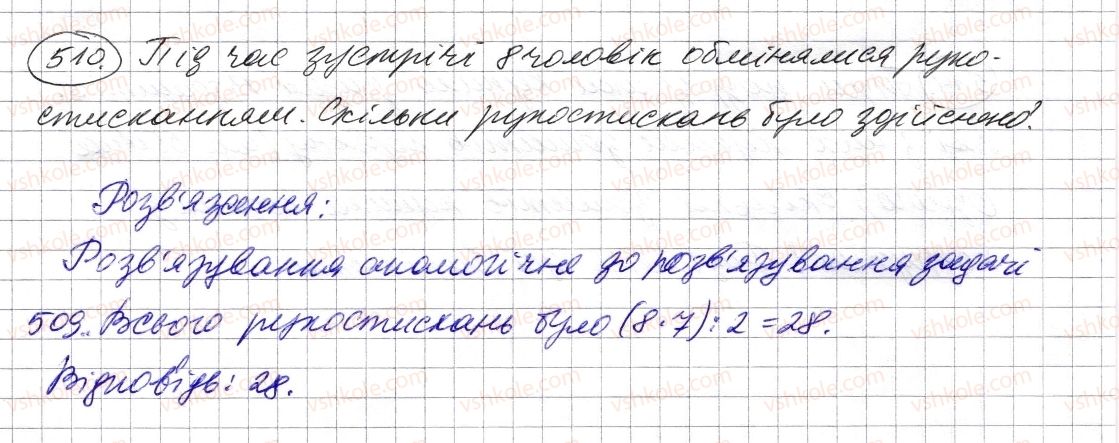 510. Під час зустрічі 8 чоловік обмінялися руко-
стисканням. Скільки рукостискань було здійснено?
Розв'язання:
Розв'язування аналогічне до розв'язування задачі
509. Всього рукостискань було (8·7):2=28.
Відповідь: 28.